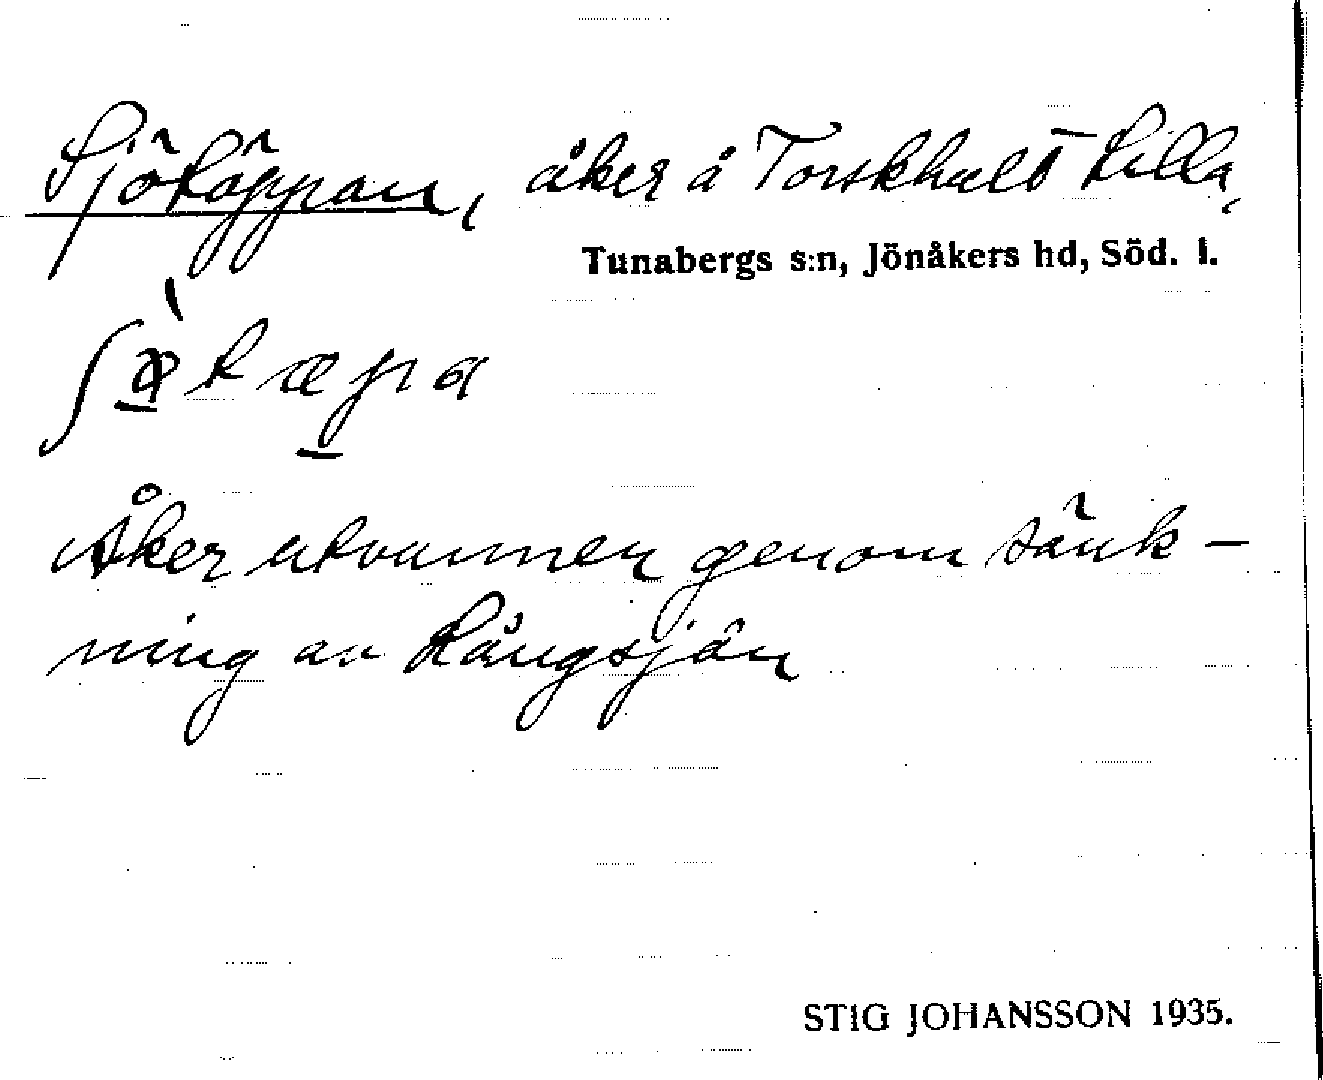 Sjötäppan, åker å Torskhult Lilla,
Tunabergs s:n, Jönåkers hd, Söd. l.
Åker utvunnen genom sänk-
ning av Rångsjön
STIG JOHANSSON 1935.